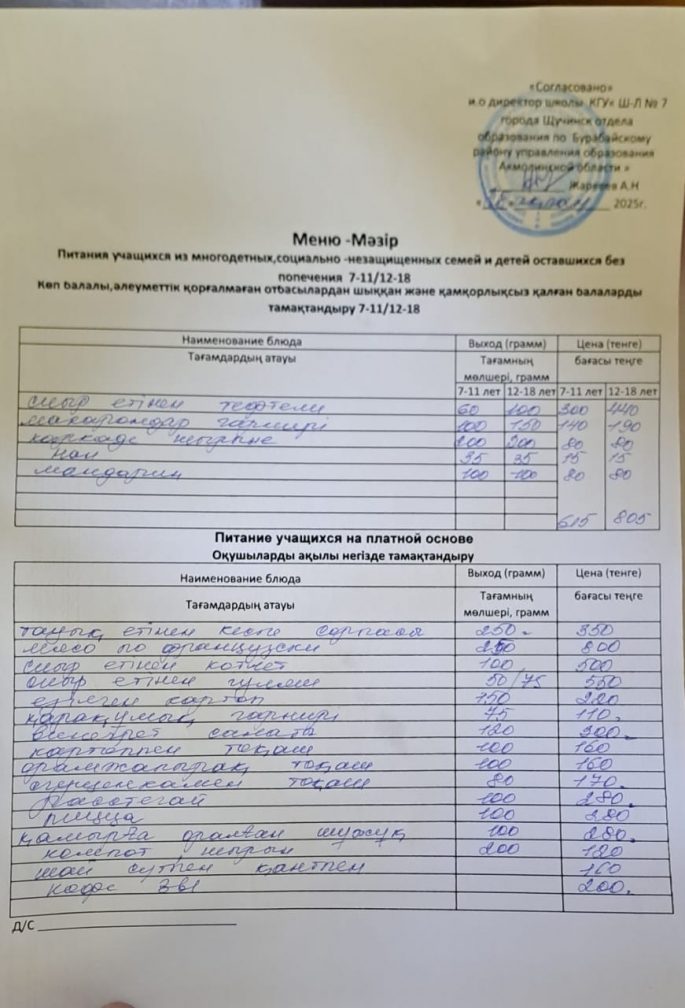 «Согласовано»
и.о директор школы КГУ« Ш-Л № 7
города Щучинск отдела
образования по Бурабайскому
району управления образования
Акмолинской области »
Жаресов А.Н
2025г.
Меню -Мәзір
Питания учащихся из многодетных,социально -незащищенных семей и детей оставшихся без
попечения 7-11/12-18
Көп балалы,әлеуметтік қорғалмаған отбасылардан шыққан және қамқорлықсыз қалған балаларды
тамақтандыру 7-11/12-18
Наименование блюда Выход (грамм) Цена (тенге)
Тағамдардың атауы Тағамның бағасы теңге
мөлшері, грамм
7-11 лет 12-18 лет 7-11 лет 12-18 лет
сиыр етінен тефтели 60 100 300 440
макарондар гарнирі 100 150 140 190
каркаде шырыне 200 200 80 80
нан 35 35 15 15
мандарин 100 100 80 80
615 805
Питание учащихся на платной основе
Оқушыларды ақылы негізде тамақтандыру
Наименование блюда Выход (грамм) Цена (тенге)
Тағамдардың атауы Тағамның бағасы теңге
мөлшері, грамм
тауық етінен кеспе сорпасы 250. 350
мясо по французски 250 800
сиыр етінен котлет 100 500
сиыр етінен гуляш 50/75 550
езілген картоп 150 220
қарақұмық гарнирі 75 110.
винегрет салаты 120 300.
картоппен тоқаш 100 160
орамжапырақ тоқаш 100 160
тоқаш 80 170.
Расстегай 100 280.
пицца 100 280
қамырға оралған шұжық 100 280.
компот, шырын 200 120
шай сүтпен қантпен 160
кофе 3в1 200.
Д/С